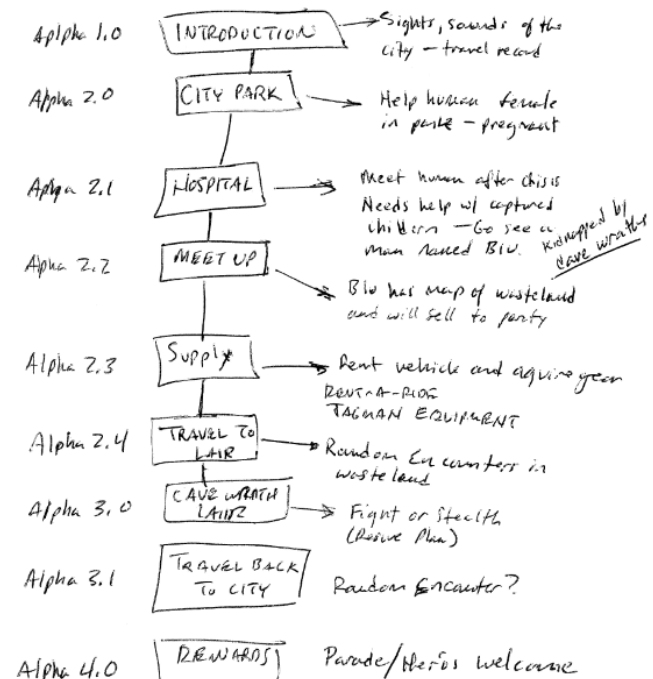 Aplpha 1.0
INTRODUCTION
Sights, sounds of the
city - travel record
Alpha 2.0
CITY PARK
Help human female
in park - pregnant
Alpha 2.1
HOSPITAL
Meet human after chisis
Needs help w/ captured
children - Go see a
man named Biv.
Kidnapped by
cave wraiths
Alpha 2.2
MEET UP
Biv has map of wasteland
and will sell to party
Alpha 2.3
Supply
Rent vehicle and aquire gear
RENT-A-RIDE
TAGMAN EQUIPMENT
Alpha 2.4
TRAVEL TO
LAIR
Random Encounters in
wasteland
Alpha 3.0
CAVE WRATH
LAIR
Fight or Stealth
(Rescue Plan)
Alpha 3.1
TRAVEL BACK
TO CITY
Random Encounter?
Alpha 4.0
REWARDS
Parade/Hero's welcome